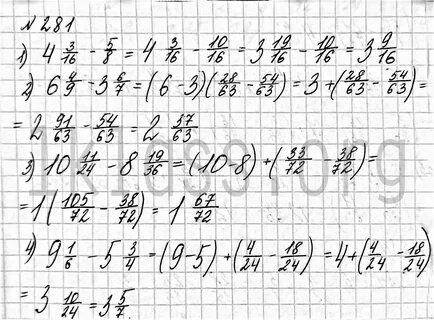 № 281
1) 4 3/16 - 5/8 = 4 3/16 - 10/16 = 3 19/16 - 10/16 = 3 9/16
2) 6 4/9 - 3 6/7 = (6-3)(28/63 - 54/63) = 3 + (28/63 - 54/63) =
= 2 91/63 - 54/63 = 2 37/63
3) 10 11/24 - 8 19/36 = (10-8) + (33/72 - 38/72) =
= 1 (105/72 - 38/72) = 1 67/72
4) 9 1/6 - 5 3/4 = (9-5) + (4/24 - 18/24) = 4 + (4/24 - 18/24)
= 3 10/24 = 3 5/7